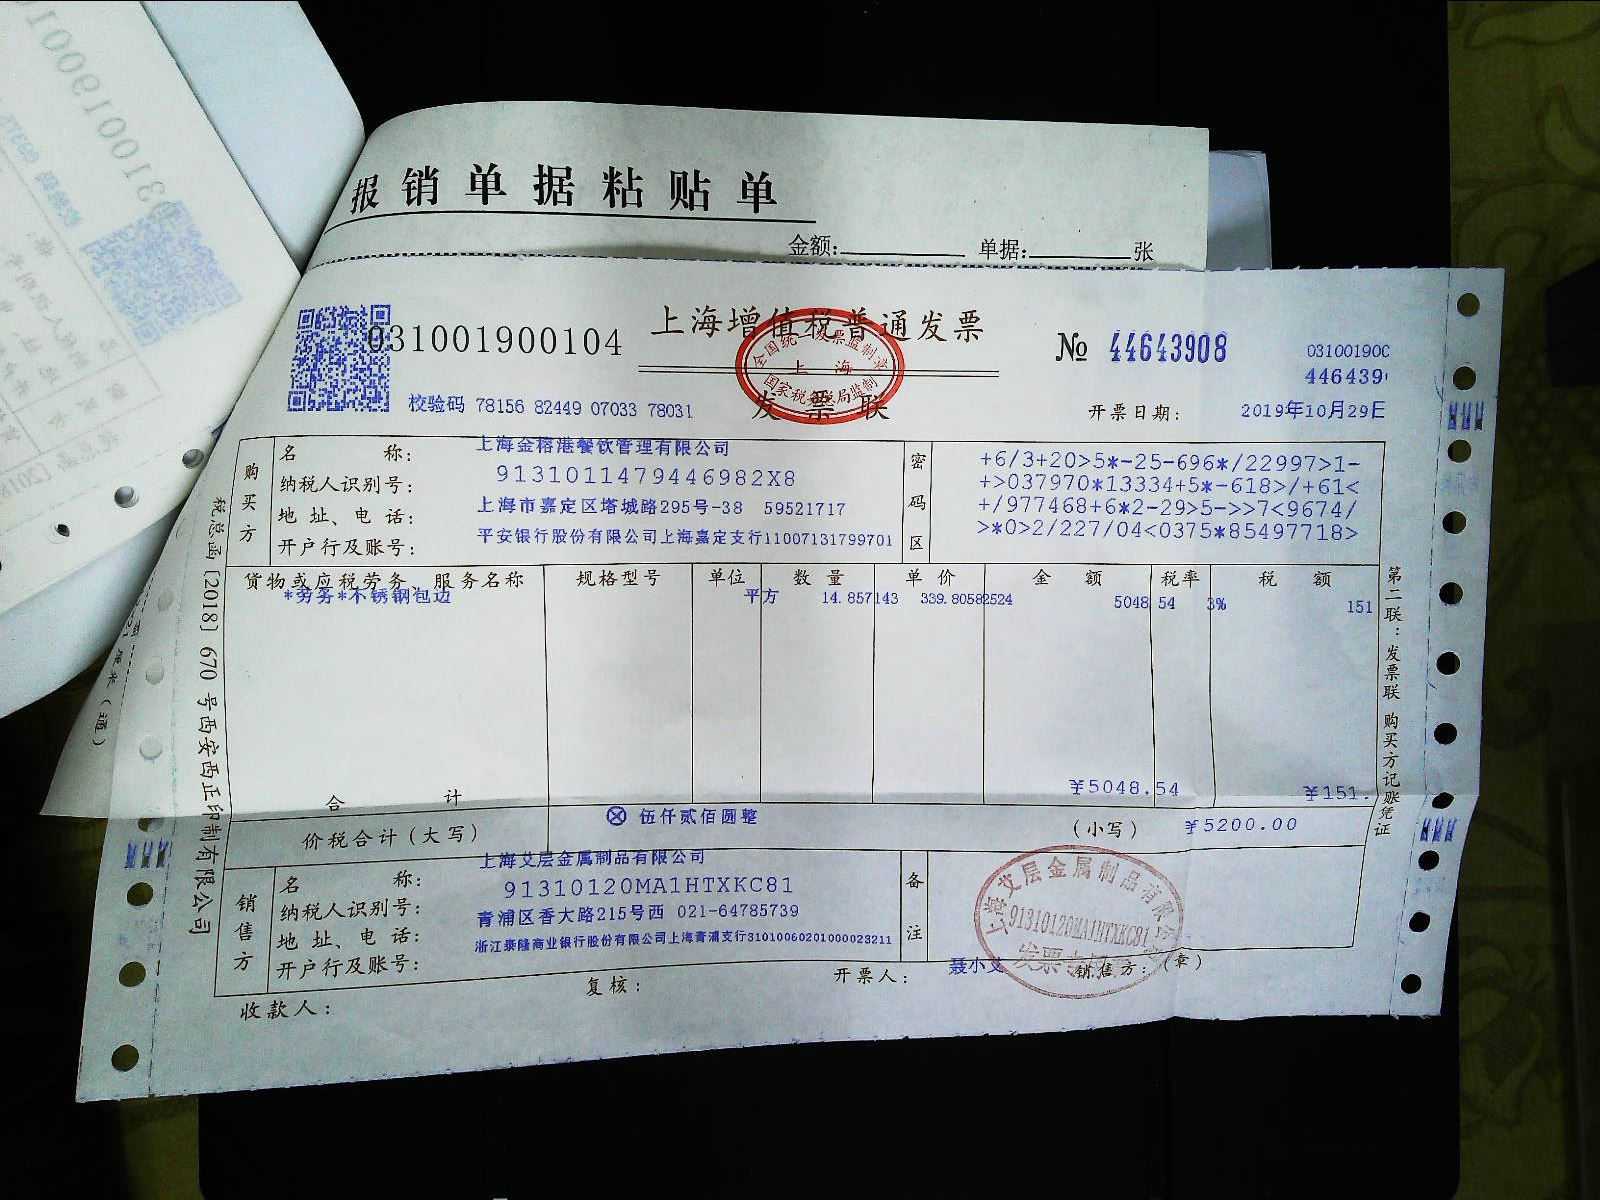 报销单据粘贴单
金额: 单据: 张
031001900104
上海增值税普通发票
全国统一发票监制章
上海
国家税务总局监制
发票联
№ 44643908
03100190C
446439
校验码 78156 82449 07033 78031
开票日期: 2019年10月29日
购买方
名称: 上海金榕港餐饮管理有限公司
纳税人识别号: 9131011479446982X8
地址、电话: 上海市嘉定区塔城路295号-38 59521717
开户行及账号: 平安银行股份有限公司上海嘉定支行11007131799701
密码区
+6/3+20>5*-25-696*/22997>1-
+>037970*13334+5*-618>/+61<
+/977468+6*2-29>5->>7<9674/
>*0>2/227/04<0375*85497718>
货物或应税劳务、服务名称 规格型号 单位 数量 单价 金额 税率 税额
*劳务*不锈钢包边 平方 14.857143 339.80582524 5048.54 3% 151
合计 ¥5048.54 ¥151.
价税合计(大写) ⊗ 伍仟贰佰圆整 (小写) ¥5200.00
销售方
名称: 上海艾层金属制品有限公司
纳税人识别号: 91310120MA1HTXKC81
地址、电话: 青浦区香大路215号西 021-64785739
开户行及账号: 浙江泰隆商业银行股份有限公司上海青浦支行31010060201000023211
备注
上海艾层金属制品有限公司
91310120MA1HTXKC81
发票专用章
收款人: 复核: 开票人: 聂小艾 销售方:(章)
税总函[2018] 670 号西安西正印制有限公司
第二联:发票联 购买方记账凭证
(通)
031001900
校验码